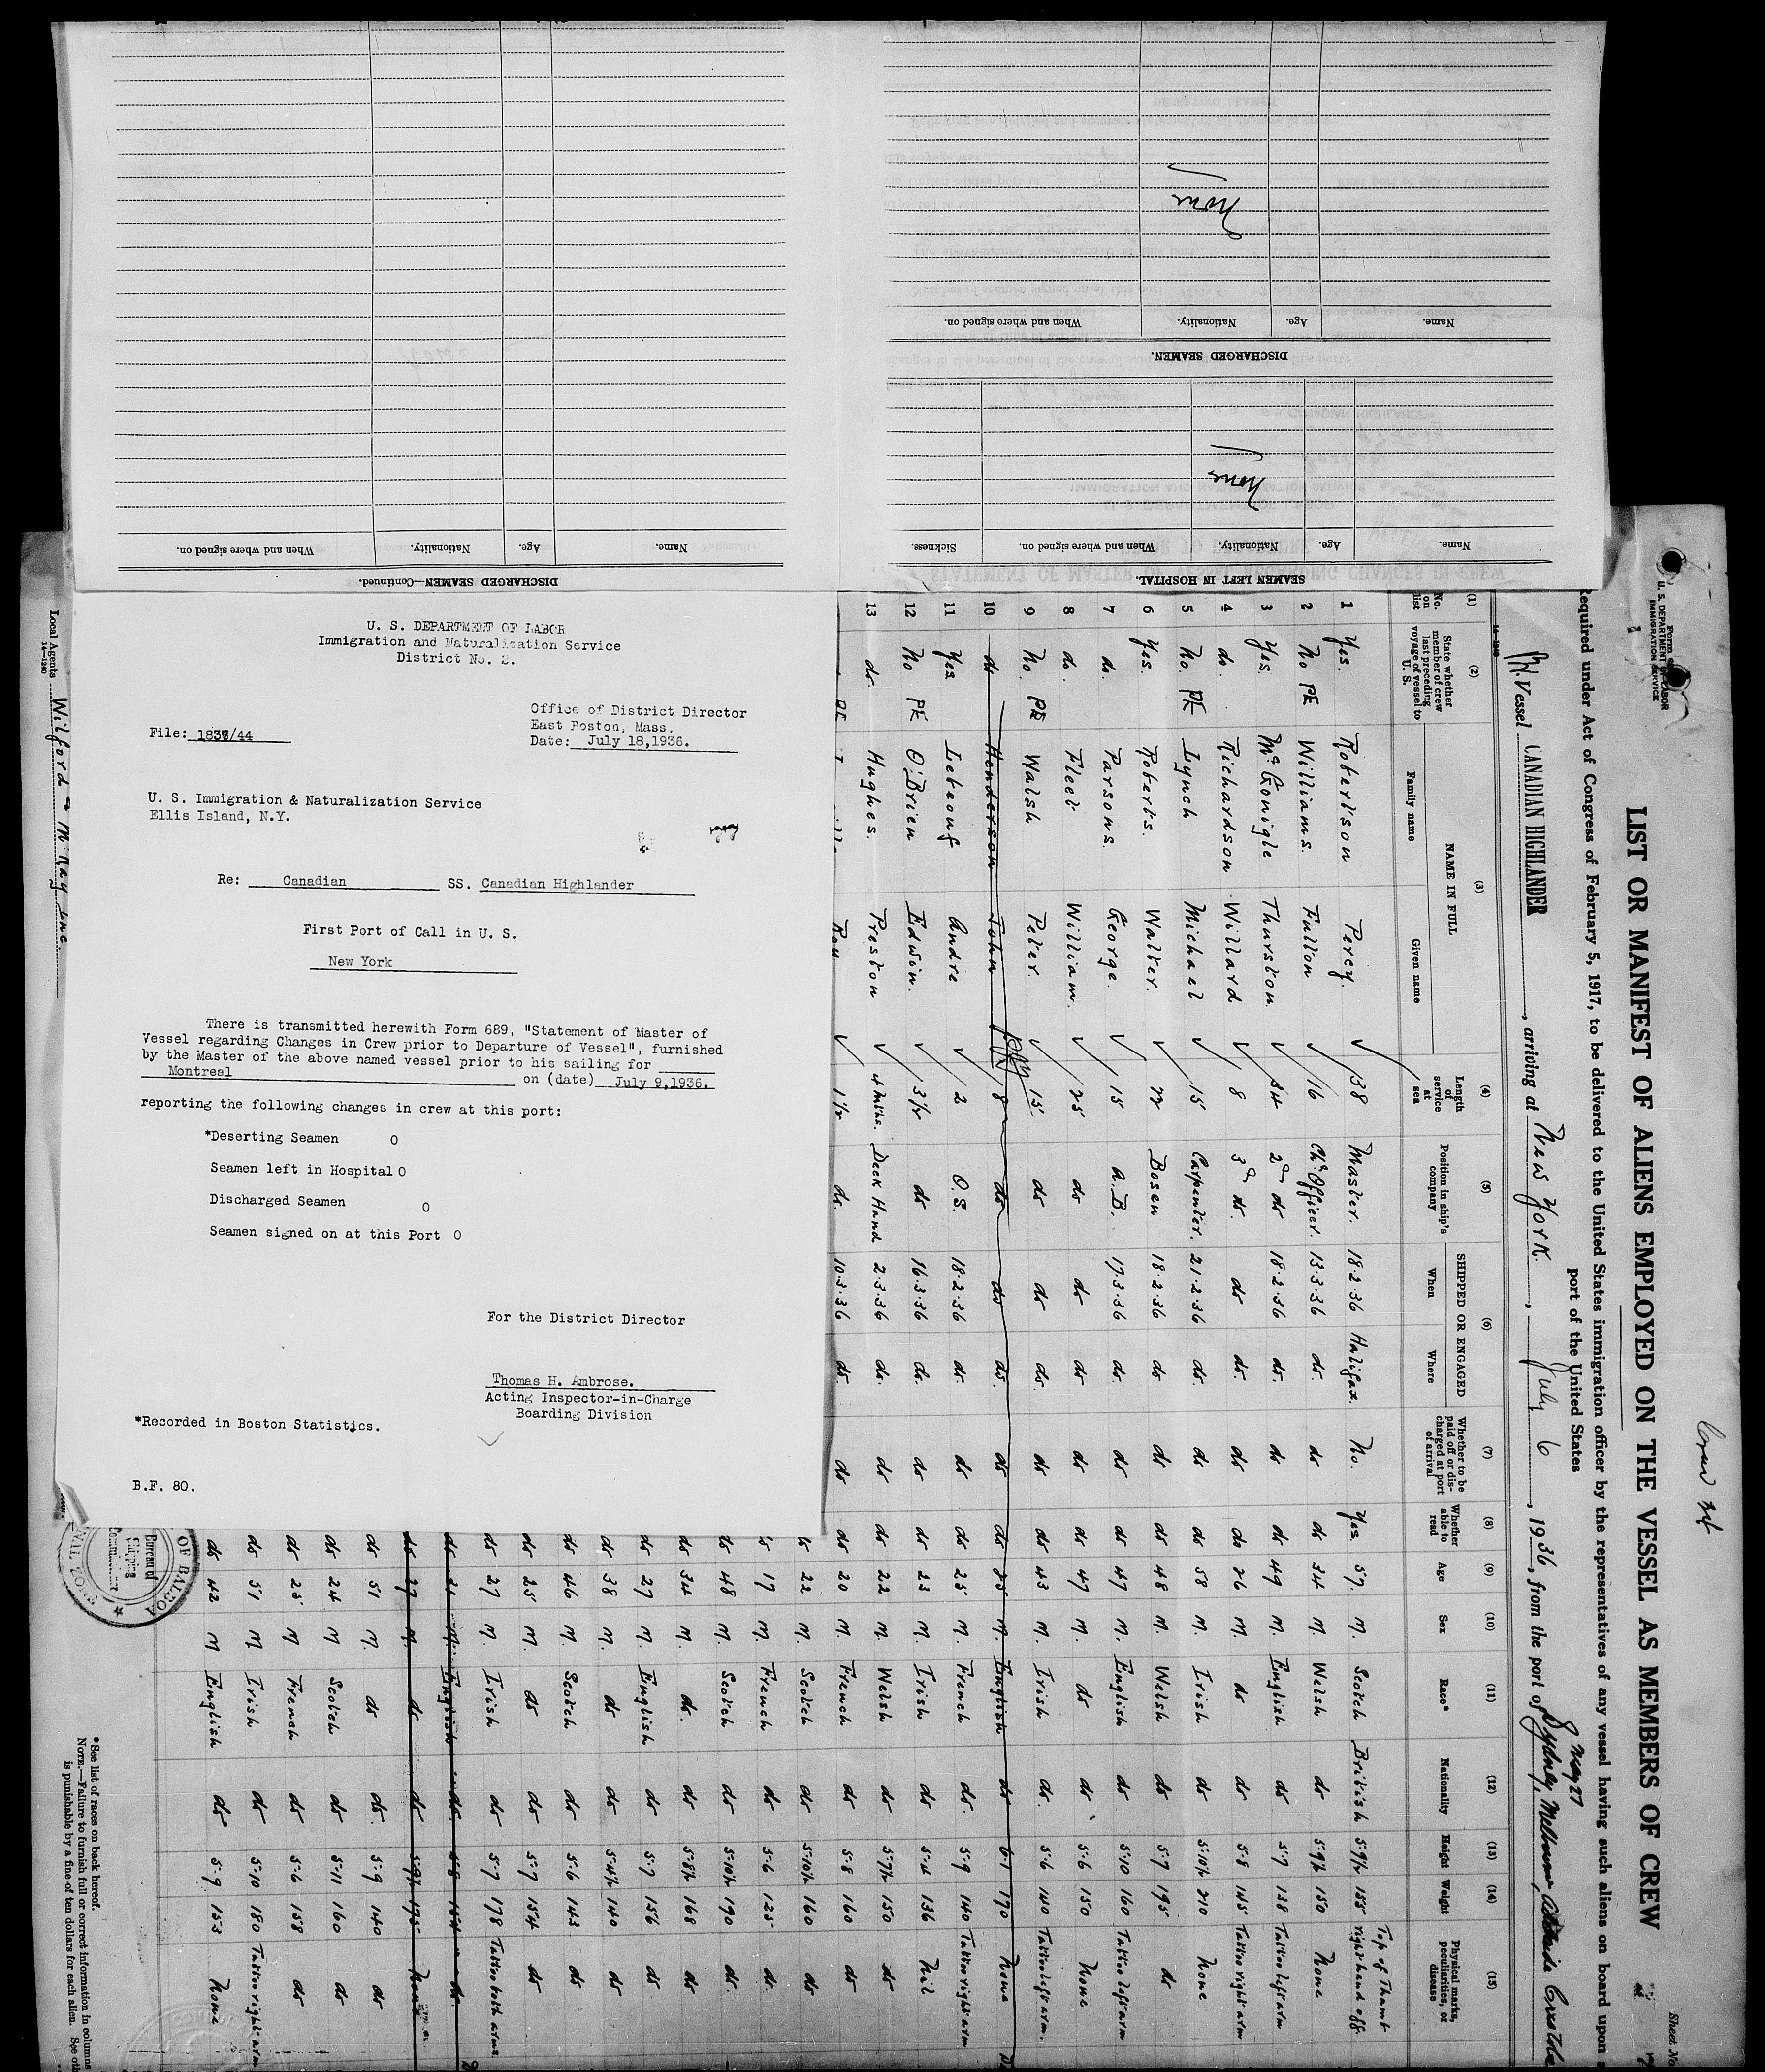 DISCHARGED SEAMEN—Continued.
Name. Age. Nationality. When and where signed on.
SEAMEN LEFT IN HOSPITAL.
Name. Age. Nationality. When and where signed on. Sickness.
None
DISCHARGED SEAMEN.
Name. Age. Nationality. When and where signed on.
None
U. S. DEPARTMENT OF LABOR
Immigration and Naturalization Service
District No. 2.
Office of District Director
East Boston, Mass.
File: 1837/44
Date: July 18,1936.
U. S. Immigration & Naturalization Service
Ellis Island, N.Y.
Re: Canadian SS. Canadian Highlander
First Port of Call in U. S.
New York
There is transmitted herewith Form 689, "Statement of Master of
Vessel regarding Changes in Crew prior to Departure of Vessel", furnished
by the Master of the above named vessel prior to his sailing for
Montreal on (date) July 9,1936.
reporting the following changes in crew at this port:
*Deserting Seamen 0
Seamen left in Hospital 0
Discharged Seamen 0
Seamen signed on at this Port 0
For the District Director
Thomas H. Ambrose.
Acting Inspector-in-Charge
Boarding Division
*Recorded in Boston Statistics.
B.F. 80.
Sheet No.
Form
U. S. DEPARTMENT OF LABOR
IMMIGRATION SERVICE
LIST OR MANIFEST OF ALIENS EMPLOYED ON THE VESSEL AS MEMBERS OF CREW
Required under Act of Congress of February 5, 1917, to be delivered to the United States immigration officer by the representatives of any vessel having such aliens on board upon
port of the United States
Vessel CANADIAN HIGHLANDER, arriving at New York, July 6, 1936, from the port of Sydney, Melbourne,
May 27
(1) (2) (3) (4) (5) (6) (7) (8) (9) (10) (11) (12) (13) (14) (15)
No. on list
State whether member of crew last preceding voyage of vessel to U. S.
NAME IN FULL
Family name Given name
Length of service at sea
Position in ship's company
SHIPPED OR ENGAGED
When Where
Whether to be paid off or discharged at port of arrival
Whether able to read
Age Sex Race* Nationality Height Weight
Physical marks, peculiarities, or disease
1 Yes. Robertson Percy. 38 Master. 18.2.36 Halifax. No. Yes 57. M. Scotch British 5-9½ 155 Top of Thumb right hand off.
2 No PE Williams. Fulton 16 Ch. Officer. 13.3.36 do. do do 34 M. Welsh do 5-9½ 150 None
3 Yes. McGonigle Thurston. 34 2d do 18.2.36 do. do do 49 M. English do 5-7 138 Tattoo left arm
4 do. Richardson Willard 8 3d do. do do. do do 26 M. do do 5-8 145 Tattoo right arm
5 No. PE Lynch Michael 15 Carpenter. 21.2.36 do. do do 58 M. Irish do 5-10½ 210 None
6 Yes. Roberts. Walter. 22 Bosen 18.2.36 do. do do 48 M. Welsh do 5-7 195 do
7 do. Parsons. George. 15 A.B. 17.3.36 do. do do 47 M. English do 5-10 160 Tattoo left arm
8 do. Fleet William. 25 do do do. do do 47 M. do do 5-6 150 None
9 No. PE Walsh Peter. 15 do do do. do do 43 M. Irish do. 5-6 140 Tattoo left arm.
10 do Henderson John 8 do do do. do do 25 M. English do 6-1 170 None
11 Yes. Leboeuf Andre 2 O.S. 18.2.36 do. do do 25 M. French do. 5-9 140 Tattoo right arm
12 No PE O'Brien Edwin. 3½ do 16.3.36 do. do do 23 M. Irish do 5-4 136 Nil
13 do. Hughes. Preston 4 mths. Deck Hand 2.3.36 do. do do 22 M. Welsh do 5-7½ 150 do
1½ do. 10.3.36 do. do do 20 M. French do 5-8 160 do
22 M. Scotch do 5-10½ 160 do
17 M. French do 5-6 125 do.
48 M. Scotch do 5-10½ 190 do.
do 34 M. do. do 5-8½ 168 do
do 27 M. English do 5-7 156 do
do 38 M. do do 5-4½ 140 do
do 46 M. Scotch do 5-6 143 do
do 25 M. do do 5-7 154 do
do 27 M. Irish do 5-7 178 Tattoo both arms.
do M. English do. 5-8 do.
do 27 M. do do 5-9½ 175 None
do 51 M. do do. 5-9 140 do
do 24 M Scotch do 5-11 160 do
do 25 M French do 5-6 158 do
do 51 M. Irish do 5-10 180 Tattoo right arm
do 42 M English do 5-9 153 None
*See list of races on back hereof.
NOTE.—Failure to furnish full or correct information in columns
is punishable by a fine of ten dollars for each alien.
Local Agents Wilford & McKay Inc.
14—1240
OF BALBOA
Bureau of
CANAL ZONE